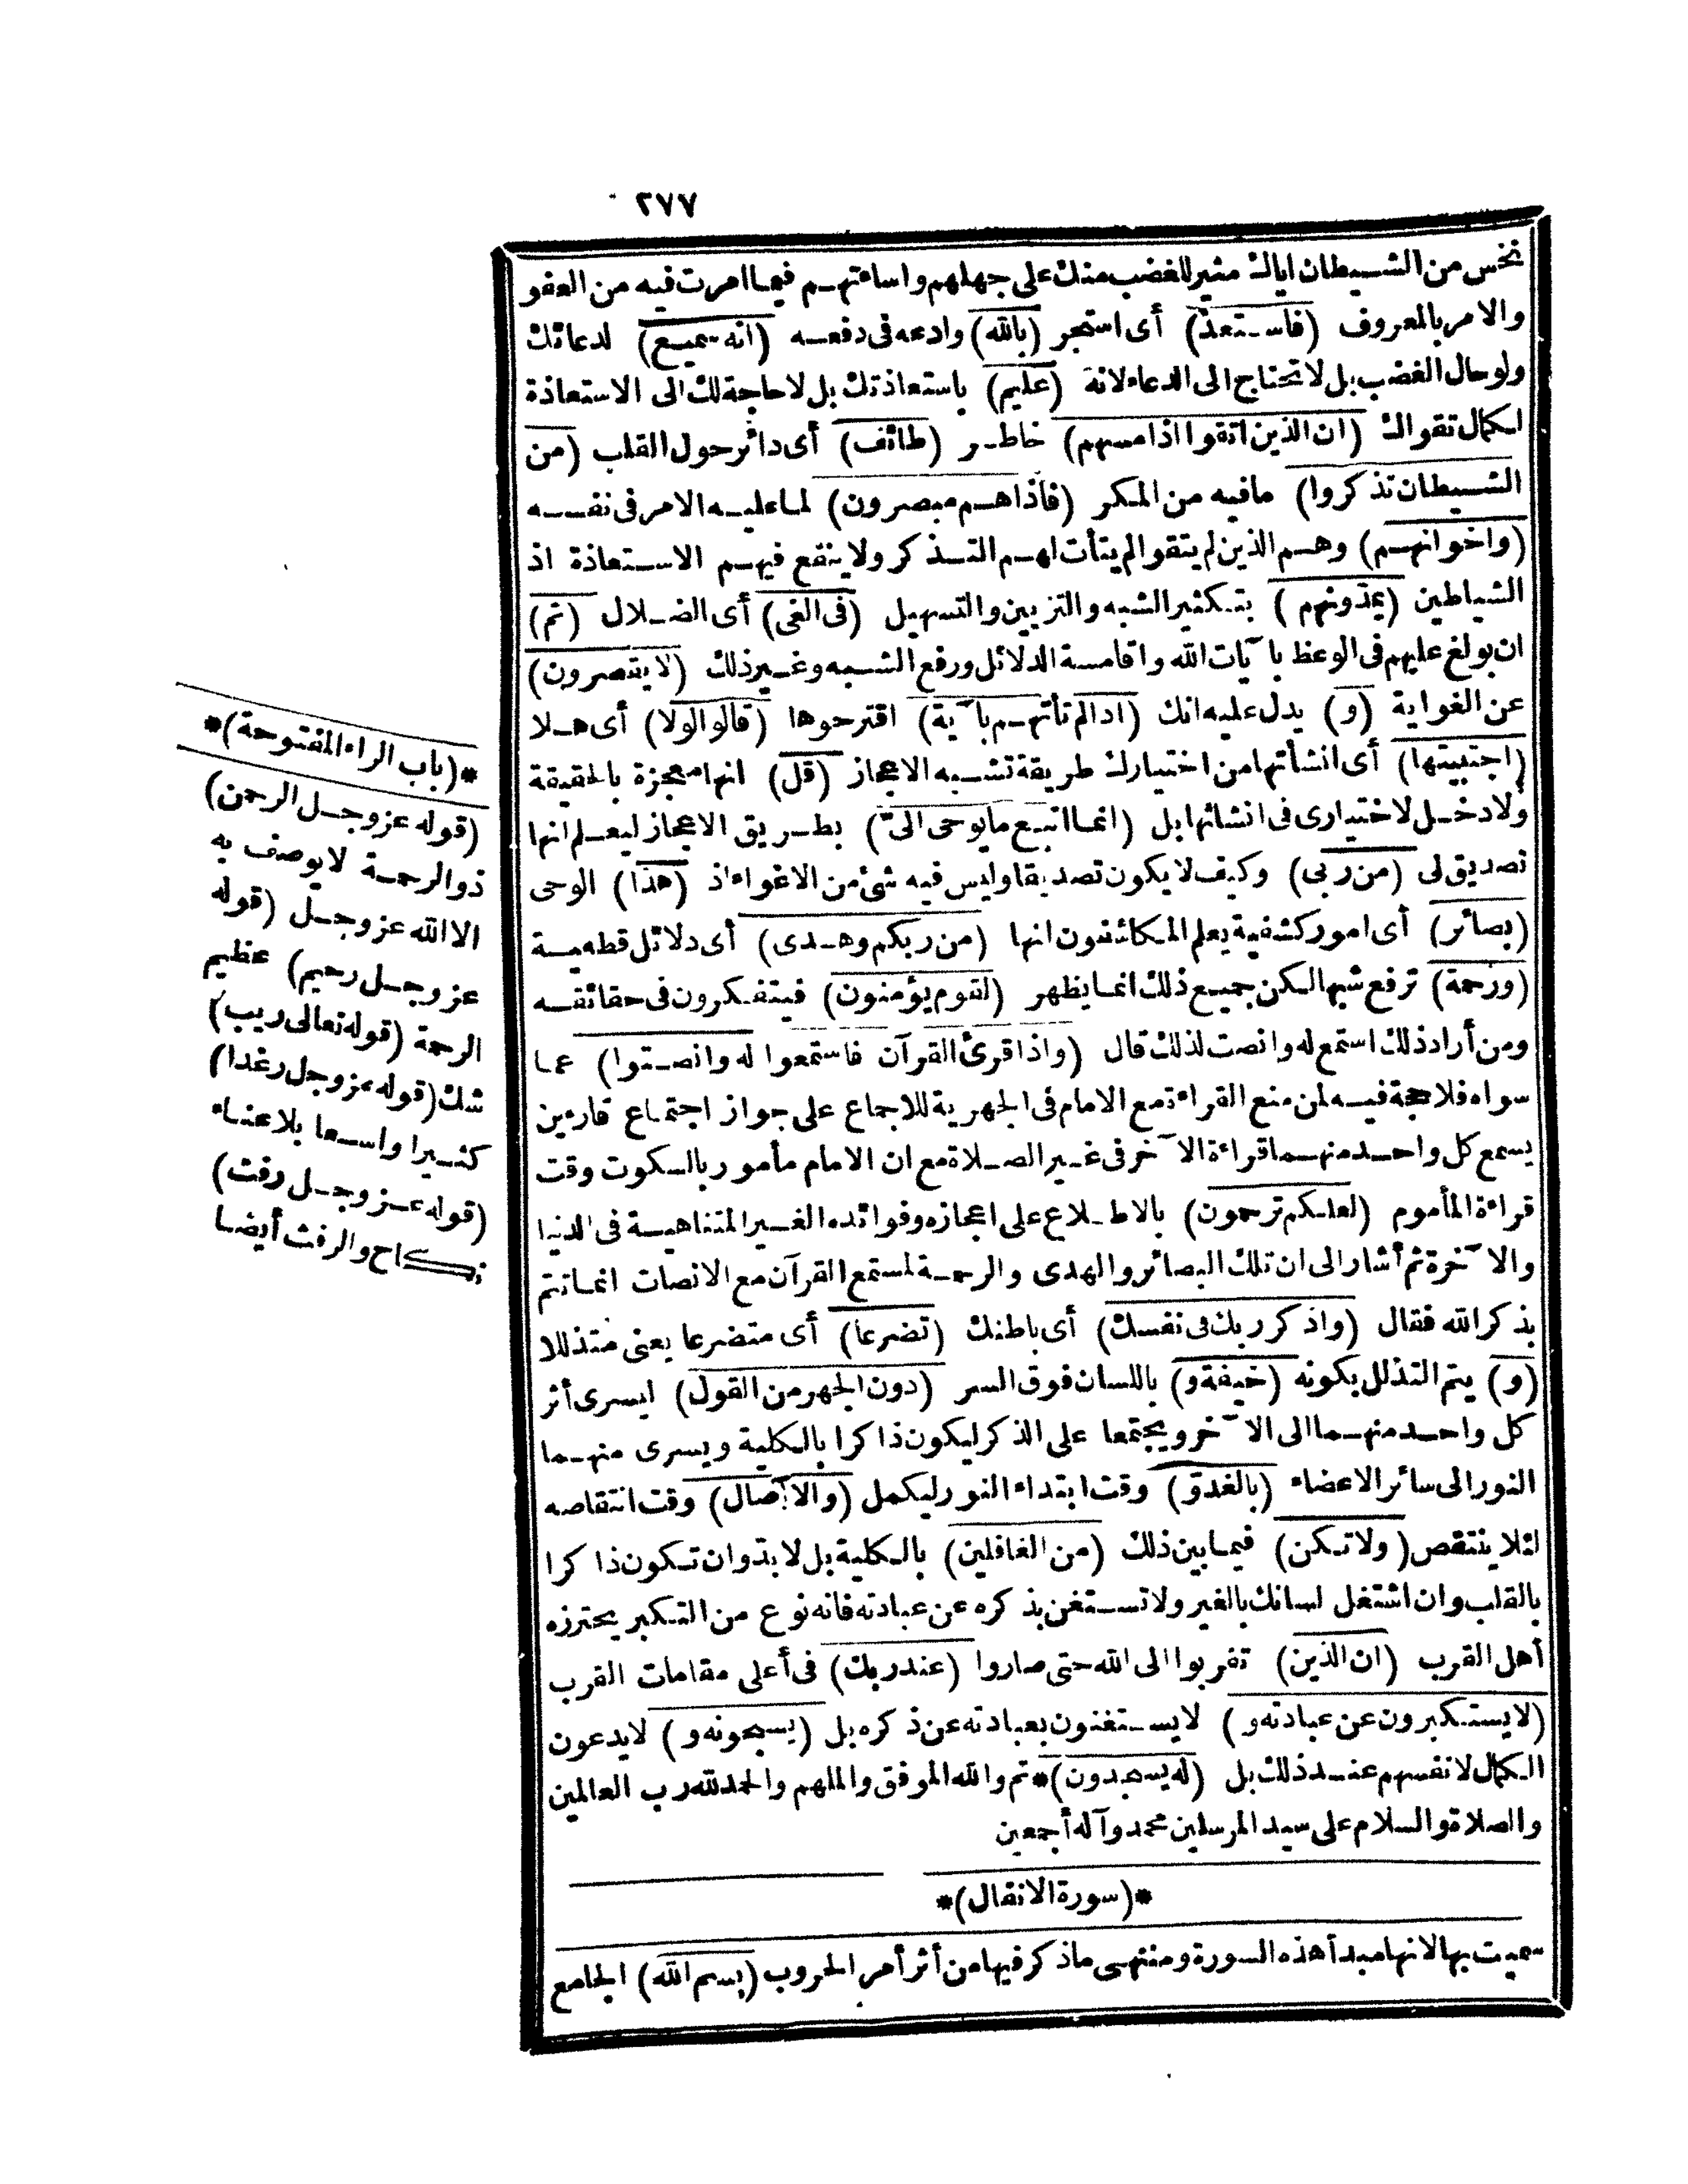 ٢٧٧
نخس من الشيطان اياك مثير للغضب منك على جهلهم واساءتهم فيما امرت فيه من العفو
والامر بالمعروف (فاستعذ) أى استجر (بالله) وادعه فى دفعه (انه سميع) لدعائك
ولو حال الغضب بل لا تحتاج الى الدعاء لانه (عليم) باستعاذتك بل لا حاجة لك الى الاستعاذة
لكمال تقواك (ان الذين اتقوا اذا مسهم) خاطر (طائف) أى دائر حول القلب (من
الشيطان تذكروا) مافيه من المكر (فاذاهم مبصرون) لما عليه الامر فى نفسه
(واخوانهم) وهم الذين لم يتقوا لم يتأت لهم التذكر ولا ينفع فيهم الاستعاذة اذ
الشياطين (يمدونهم) بتكثير الشبه والتزيين والتسهيل (فى الغى) أى الضلال (ثم)
ان بولغ عليهم فى الوعظ بآيات الله واقامة الدلائل ورفع الشبه وغير ذلك (لا يقصرون)
عن الغواية (و) يدل عليه انك (اذا لم تأتهم بآية) اقترحوها (قالوا لولا) أى هلا
(اجتبيتها) أى انشأتها من اختيارك طريقة تشبه الاعجاز (قل) انها معجزة بالحقيقة
ولا دخل لاختيارى فى انشائها بل (انما اتبع ما يوحى الىّ) بطريق الاعجاز ليعلم انها
تصديق لى (من ربى) وكيف لا يكون تصديقا وليس فيه شئ من الاغواء اذ (هذا) الوحى
(بصائر) أى امور كشفية يعلم المكاشفون انها (من ربكم وهدى) أى دلائل قطعية
(ورحمة) ترفع شبها لكن جميع ذلك انما يظهر (لقوم يؤمنون) فيتفكرون فى حقائقه
ومن أراد ذلك استمع له وانصت لذلك قال (واذا قرئ القرآن فاستمعوا له وانصتوا) عما
سواه فلا حجة فيه لمن منع القراءة مع الامام فى الجهرية للاجماع على جواز اجتماع قارئين
يسمع كل واحد منهما قراءة الآخر فى غير الصلاة مع ان الامام مأمور بالسكوت وقت
قراءة المأموم (لعلكم ترحمون) بالاطلاع على اعجازه وفوائده الغير المتناهية فى الدنيا
والآخرة ثم أشار الى ان تلك البصائر والهدى والرحمة لمستمع القرآن مع الانصات انما تتم
بذكر الله فقال (واذكر ربك فى نفسك) أى باطنك (تضرعا) أى متضرعا يعنى متذللا
(و) يتم التذلل بكونه (خيفة و) باللسان فوق السر (دون الجهر من القول) ليسرى أثر
كل واحد منهما الى الآخر ويجتمعا على الذكر ليكون ذاكرا بالكلية ويسرى منهما
النور الى سائر الاعضاء (بالغدوّ) وقت ابتداء النور ليكمل (والآصال) وقت انتقاصه
لئلا ينتقص (ولا تكن) فيما بين ذلك (من الغافلين) بالكلية بل لا بد وان تكون ذاكرا
بالقلب وان اشتغل لسانك بالغير ولا تستغن بذكره عن عبادته فانه نوع من التكبر يحترزه
أهل القرب (ان الذين) تقربوا الى الله حتى صاروا (عند ربك) فى أعلى مقامات القرب
(لا يستكبرون عن عبادته و) لا يستغنون بعبادته عن ذكره بل (يسبحونه و) لا يدعون
الكمال لانفسهم عند ذلك بل (له يسجدون)* تم والله الموفق والملهم والحمد لله رب العالمين
والصلاة والسلام على سيد المرسلين محمد وآله أجمعين
*(سورة الانفال)*
سميت بها لانها مبدأ هذه السورة ومنتهى ما ذكر فيها من أثر أمر الحروب (بسم الله) الجامع
*(باب الراء المفتوحة)*
(قوله عز وجل الرحمن)
ذو الرحمة لا يوصف به
الا الله عز وجل (قوله
عز وجل رحيم) عظيم
الرحمة (قوله تعالى ريب)
شك (قوله عز وجل رغدا)
كثيرا واسعا بلا عناء
(قوله عز وجل رفث)
نكاح والرفث أيضا